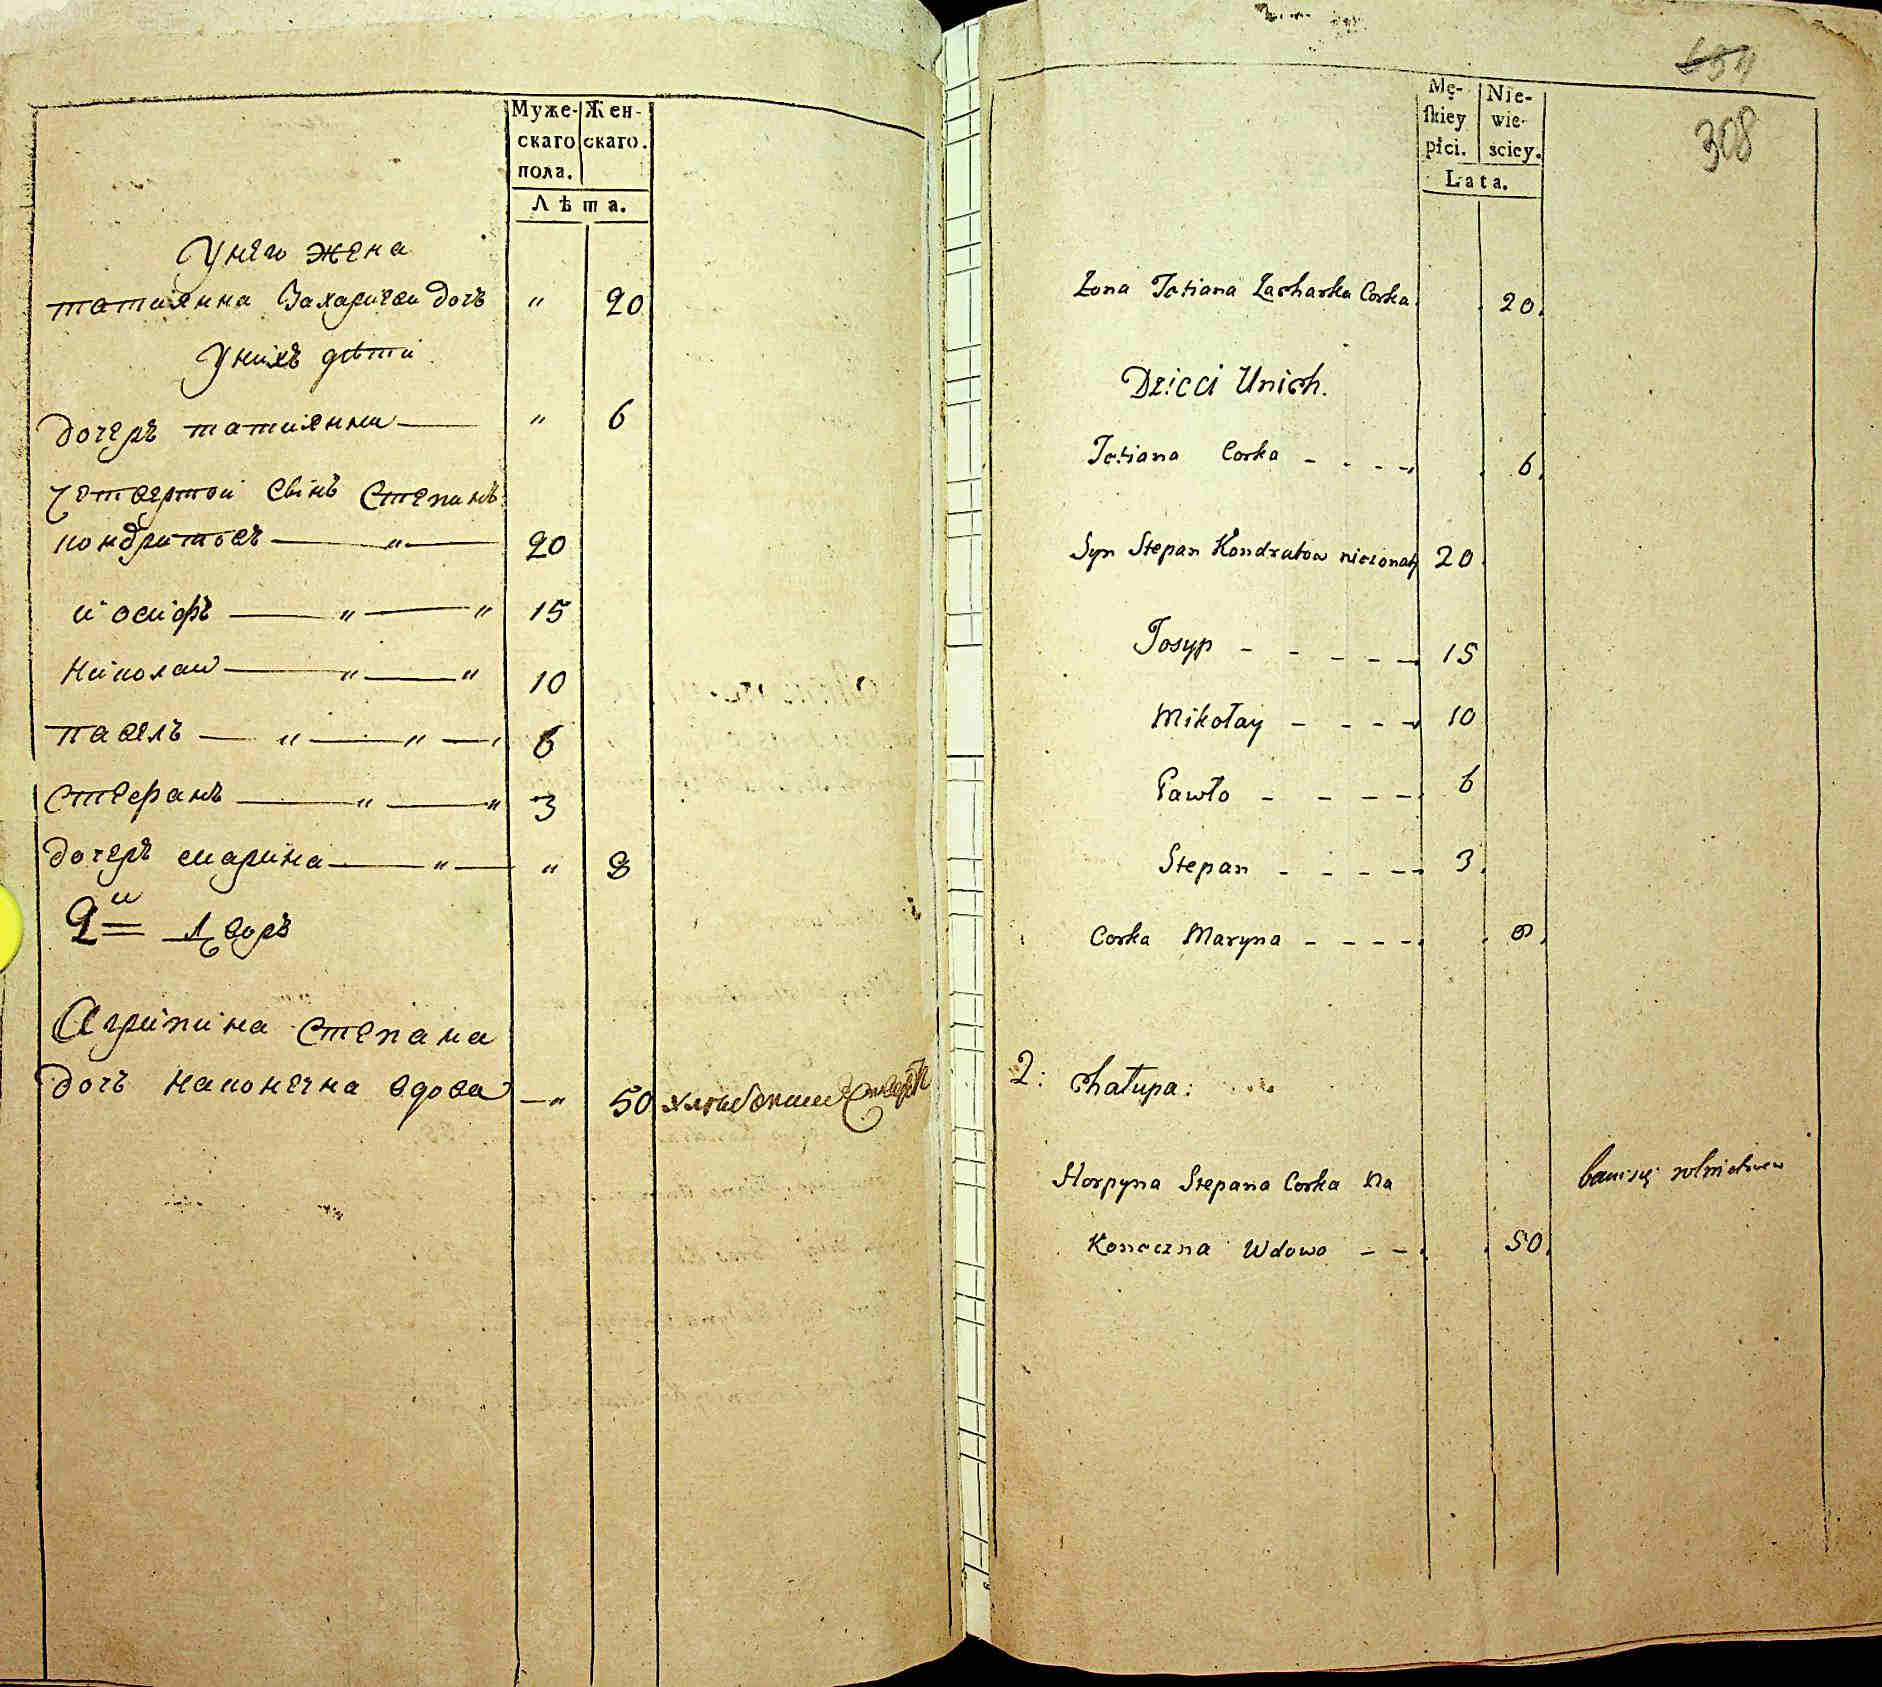 Муже-
скаго
пола.
Жен-
скаго.
Лѣта.
У него жена
татиянна Захариева дочъ " 20
У нихъ дѣти
дочеръ татиянна " 6
Четвертой сынъ Степанъ
кондратовъ " 20
иосифъ " " 15
Николаи " " 10
павелъ " " 6
стефанъ " " 3
дочеръ марина " " 8
2й Дворъ
Агрипина степана
дочъ наконечна вдова " 50
Mę-
skiey
płci.
Nie-
wie-
sciey.
Lata.
654
308
Żona Tatiana Zacharka Corka 20.
Dzieci Unich.
Tatiana Corka - - - - 6.
Syn Stepan Kondratow nieżonaty 20.
Josyp - - - - - 15
Mikołay - - - - 10
Pawło - - - - 6
Stepan - - - - - 3.
Corka Maryna - - - - 8.
2: Chałupa:
Horpyna Stepana Corka Na
Koneczna Wdowa - - 50.
bawi się rolnictwem